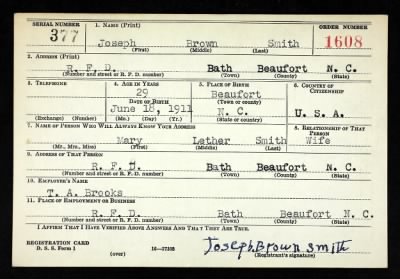 SERIAL NUMBER 1. NAME (Print) ORDER NUMBER
377 Joseph Brown Smith 1608
(First) (Middle) (Last)
2. ADDRESS (Print)
R. F. D. Bath Beaufort N. C.
(Number and street or R. F. D. number) (Town) (County) (State)
3. TELEPHONE 4. AGE IN YEARS 5. PLACE OF BIRTH 6. COUNTRY OF CITIZENSHIP
29 Beaufort
DATE OF BIRTH (Town or county)
June 18, 1911 N. C. U. S. A.
(Exchange) (Number) (Mo.) (Day) (Yr.) (State or country)
7. NAME OF PERSON WHO WILL ALWAYS KNOW YOUR ADDRESS 8. RELATIONSHIP OF THAT PERSON
Mary Lether Smith Wife
(Mr., Mrs., Miss) (First) (Middle) (Last)
9. ADDRESS OF THAT PERSON
R. F. D. Bath Beaufort N. C.
(Number and street or R. F. D. number) (Town) (County) (State)
10. EMPLOYER'S NAME
T. A. Brooks
11. PLACE OF EMPLOYMENT OR BUSINESS
R. F. D. Bath Beaufort N. C.
(Number and street or R. F. D. number) (Town) (County) (State)
I AFFIRM THAT I HAVE VERIFIED ABOVE ANSWERS AND THAT THEY ARE TRUE.
REGISTRATION CARD
D. S. S. Form 1 16—17105 Joseph Brown Smith
(over) (Registrant's signature)